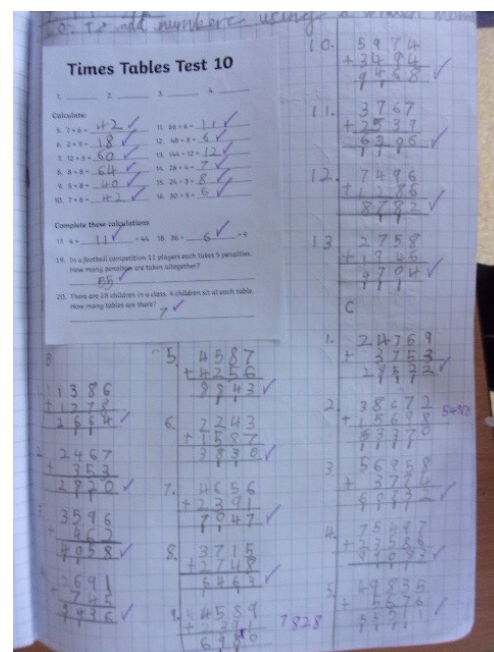 L.O: To add numbers using a written
Times Tables Test 10
1. 2. 3. 4.
Calculate:
5. 7 × 6 = 42
6. 2 × 9 = 18
7. 12 × 5 = 60
8. 8 × 8 = 64
9. 5 × 8 = 40
10. 7 × 6 = 42
11. 66 ÷ 6 = 11
12. 48 ÷ 8 = 6
13. 144 ÷ 12 = 12
14. 28 ÷ 4 = 7
15. 24 ÷ 3 = 8
16. 30 ÷ 5 = 6
Complete these calculations
17. 4 × 11 = 44 18. 36 ÷ 6 = 6
19. In a football competition 11 players each takes 5 penalties.
How many penalties are taken altogether?
55
20. There are 28 children in a class. 4 children sit at each table.
How many tables are there?
7
B
1. 1386
+1278
2664
2. 2467
+ 353
2820
3. 3596
+ 462
4058
2691
+ 745
3436
5. 4587
+4256
8843
6. 2243
+1587
3830
7. 4656
+2391
7047
8. 3715
+2748
6463
9. 4589
7828
10. 5974
+3494
9468
11. 3767
+2539
6306
12. 7496
+1286
8782
13
2758
C
1. 24769
+ 3753
28522
2. 38672
+15698
3. 56958
4. 75497
5. 49835